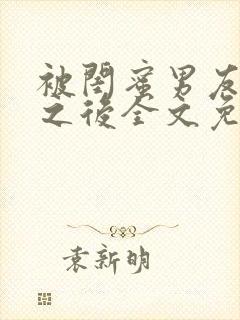 被閨蜜男友
之後全文免
袁新明